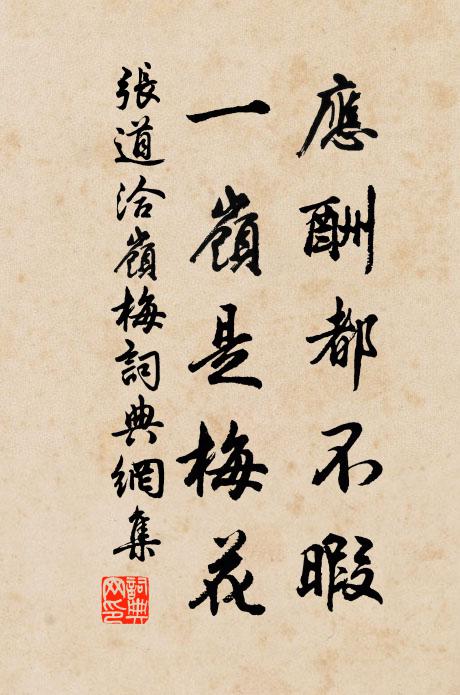 應酬都不暇
一嶺是梅花
張道洽嶺梅詞典網集
詞典
网印